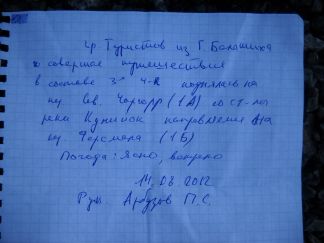 гр. Туристов из г. Балашиха
совершая путешествие
в составе 3х ч-к поднялась на
пер. Сев. Чоргорр (1А) со ст-ны
реки Кунийок направляемся на
пер. Ферсмана (1Б)
Погода: ясно, ветрено
14.08.2012
Рук. Арбузов П.С.